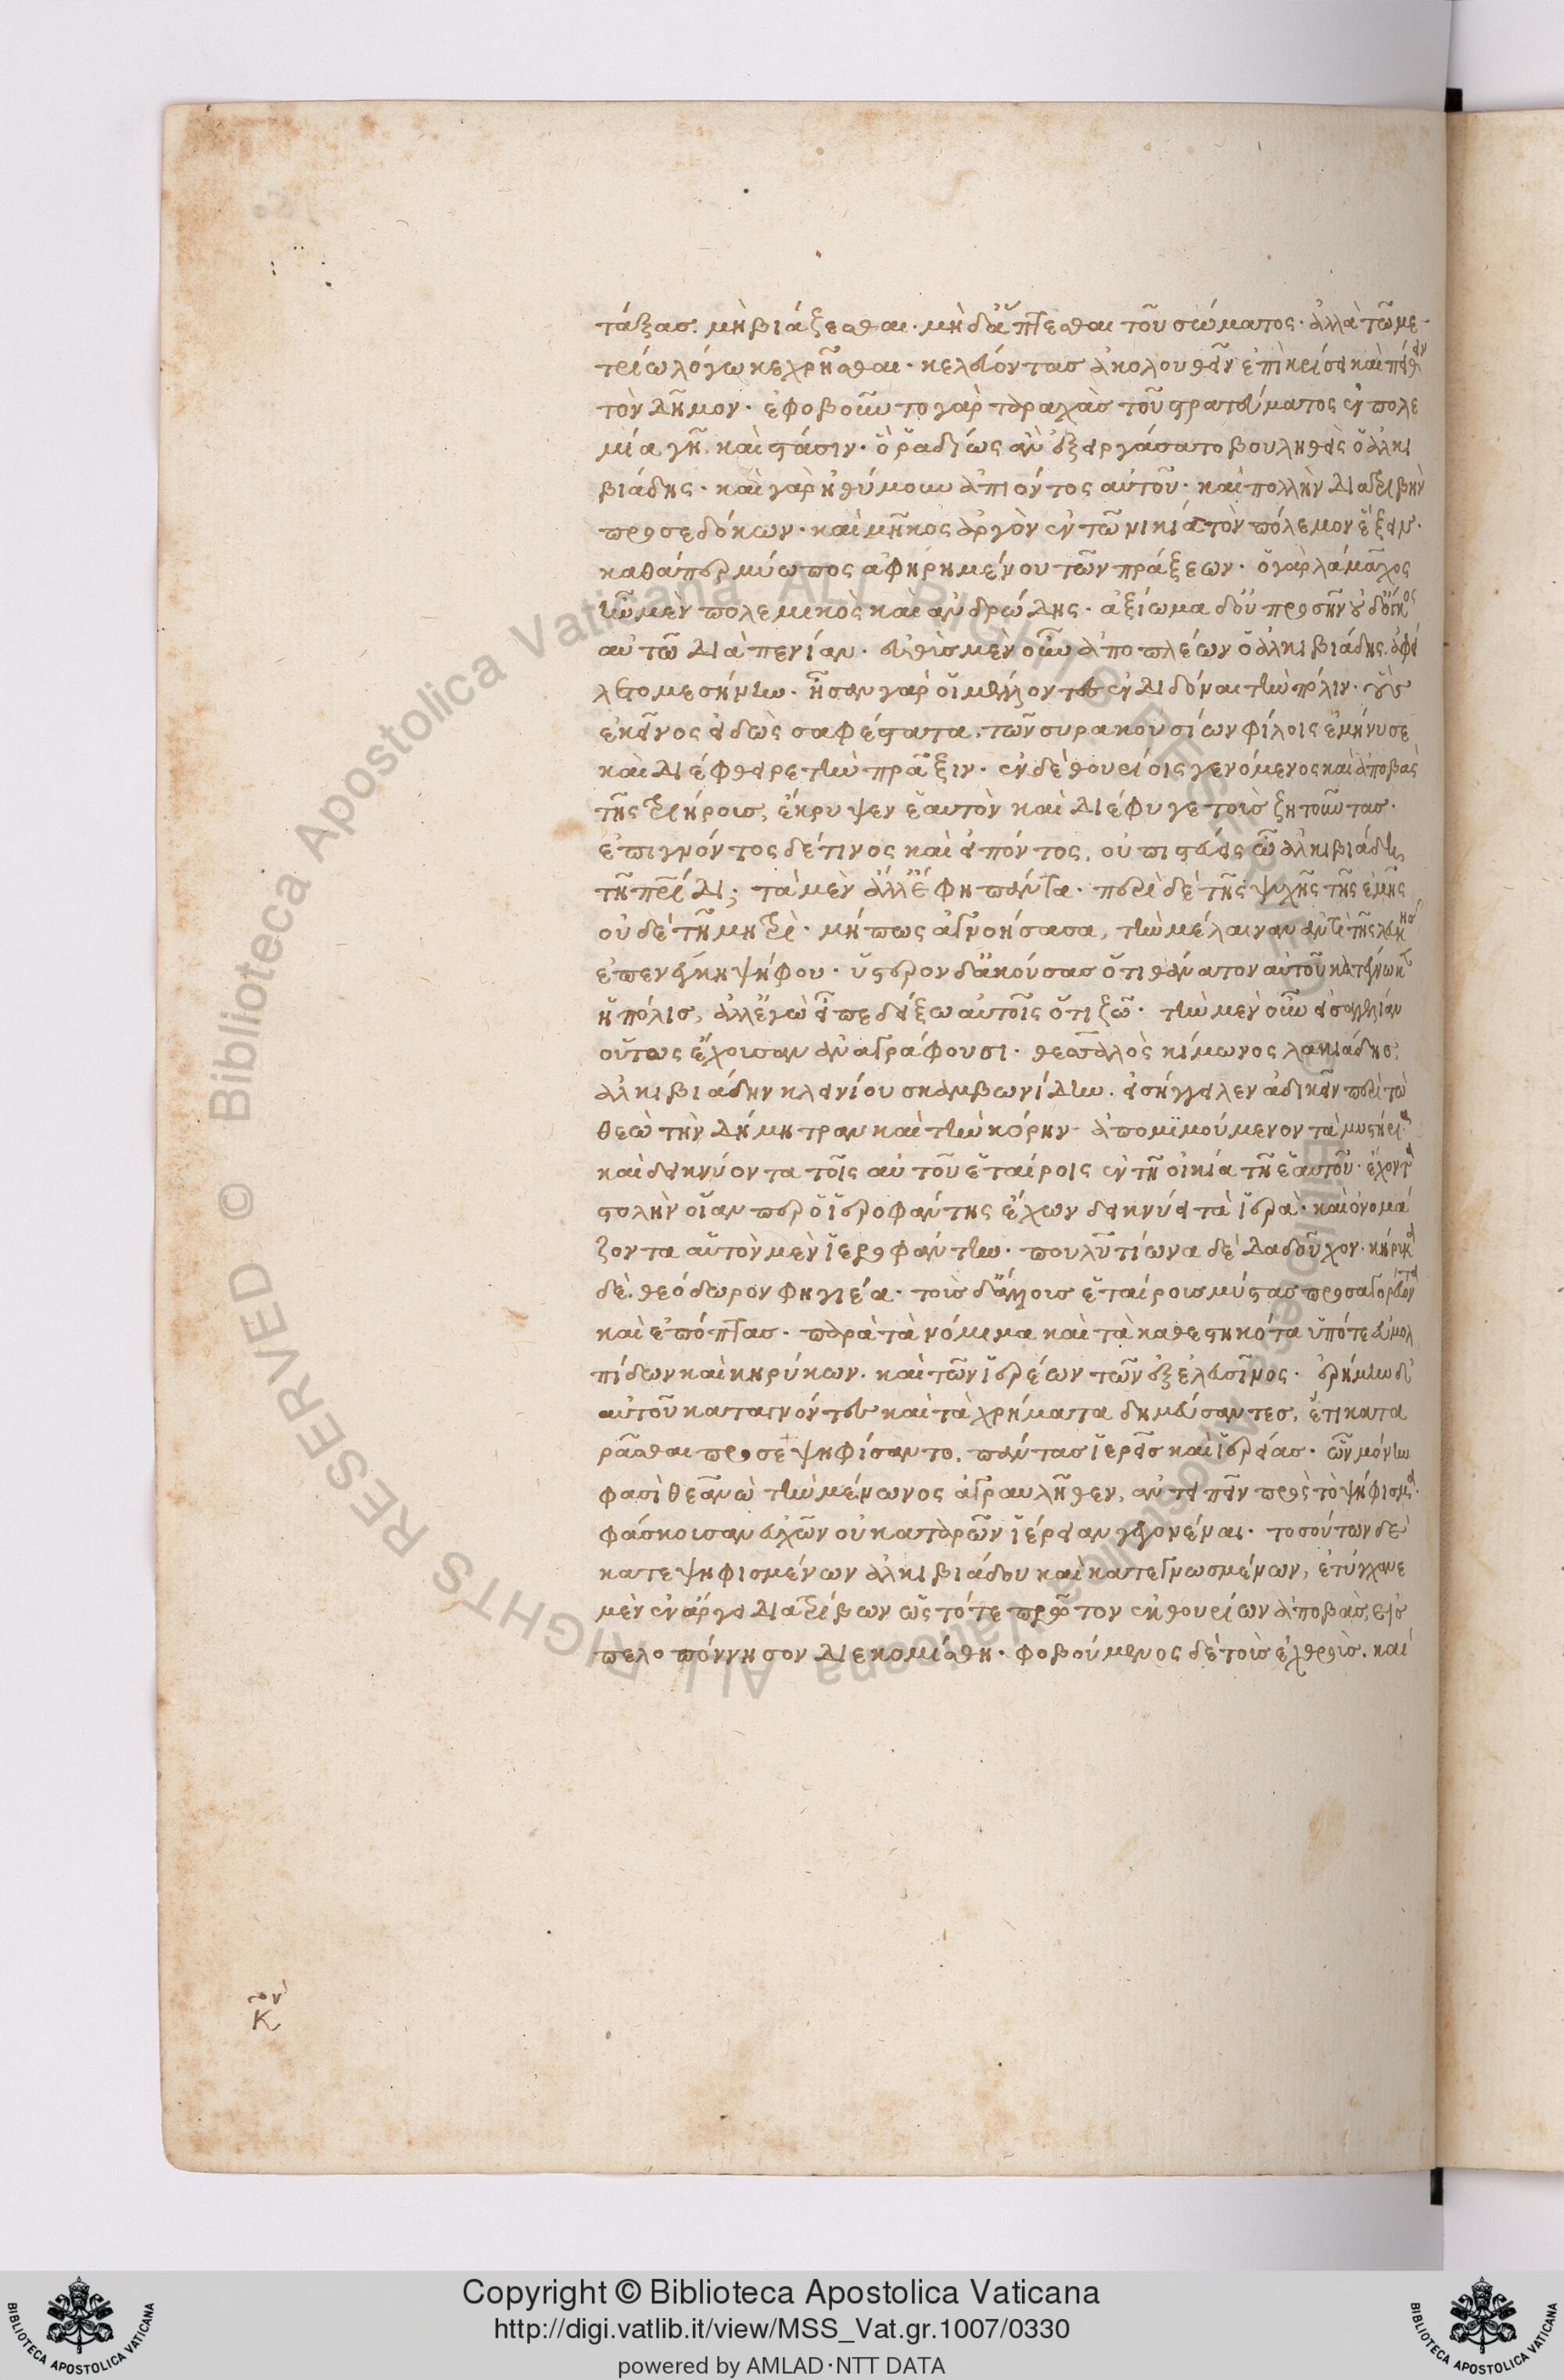 τάξας· μὴ βιάζεσθαι· μὴ δ' ἅπτεσθαι τοῦ σώματος· ἀλλὰ τῶ με-
τρίω λόγω κεχρῆσθαι· κελεύοντας ἀκολουθεῖν ἐπὶ κρίσει καὶ πείθειν
τὸν δῆμον· ἐφοβοῦντο γὰρ ταραχὰς τοῦ στρατεύματος ἐν πολε
μία γῆ καὶ στάσιν· ὃ ῥαδίως ἂν ἐξειργάσατο βουληθεὶς ὁ ἀλκι
βιάδης· καὶ γὰρ ἠθύμουν ἀπιόντος αὐτοῦ· καὶ πολλὴν διατριβὴν
προσεδόκων· καὶ μῆκος ἀργὸν ἐν τῶ νικία τὸν πόλεμον ἕξειν·
καθάπερ μύωπος ἀφηρημένου τῶν πράξεων· ὁ γὰρ λάμαχος
ἦν μὲν πολεμικὸς καὶ ἀνδρώδης· ἀξίωμα δ' οὐ προσῆν οὐδ' ὄγκος
αὐτῶ διὰ πενίαν· εὐθὺς μὲν οὖν ἀποπλέων ὁ ἀλκιβιάδης, ἀφεί
λετο μεσήνην· ἦσαν γὰρ οἱ μέλλοντες ἐνδιδόναι τὴν πόλιν· οὓς
ἐκεῖνος εἰδὼς σαφέστατα, τῶν συρακουσίων φίλοις ἐμήνυσε
καὶ διέφθειρε τὴν πρᾶξιν· ἐν δὲ θουρίοις γενόμενος καὶ ἀποβὰς
τῆς τριήροις, ἔκρυψεν ἑαυτὸν καὶ διέφυγε τοὺς ζητοῦντας·
ἐπιγνόντος δέ τινος καὶ εἰπόντος, οὐ πιστεύεις ὦ ἀλκιβιάδη,
τῆ πατρίδι; τὰ μὲν ἄλλ' ἔφη πάντα· περὶ δὲ τῆς ψυχῆς τῆς ἐμῆς
οὐδὲ τῆ μητρὶ· μήπως ἀγνοήσασα, τὴν μέλαιναν ἀντὶ τῆς λευκῆς
ἐπενέγκη ψήφου· ὕστερον δ' ἀκούσας ὅτι θάνατον αὐτοῦ κατέγνωκεν
ἡ πόλις, ἀλλ' ἐγὼ εἶπε δείξω αὐτοῖς ὅτι ζῶ· τὴν μὲν οὖν εἰσαγγελίαν
οὕτως ἔχουσαν ἀναγράφουσι· θεσσαλὸς κίμωνος λακιάδης,
ἀλκιβιάδην κλεινίου σκαμβωνίδην εἰσήγγειλεν ἀδικεῖν περὶ τὼ
θεὼ τὴν δήμητραν καὶ τὴν κόρην ἀπομιμούμενον τὰ μυστήρια
καὶ δεικνύοντα τοῖς αὑτοῦ ἑταίροις ἐν τῆ οἰκία τῆ ἑαυτοῦ· ἔχοντα
στολὴν οἵαν περ ὁ ἱεροφάντης ἔχων δεικνύει τὰ ἱερὰ· καὶ ὀνομά
ζοντα αὑτὸν μὲν ἱεροφάντην· πουλυτίωνα δὲ δαδοῦχον· κήρυκα
δὲ θεόδωρον φηγιέα· τοὺς δ' ἄλλους ἑταίρους μύστας προσαγορεύοντα
καὶ ἐπόπτας· παρὰ τὰ νόμιμα καὶ τὰ καθεστηκότα ὑπό τε εὐμολ
πίδων καὶ κηρύκων· καὶ τῶν ἱερέων τῶν ἐξ ἐλευσῖνος· ἐρήμην δ'
αὐτοῦ καταγνόντες καὶ τὰ χρήματα δημεύσαντες, ἔτι κατα
ρᾶσθαι προσεψηφίσαντο, πάντας ἱερεῖς καὶ ἱερείας· ὧν μόνην
φασὶ θεανὼ τὴν μένωνος ἀγραυλῆθεν, ἀντειπεῖν πρὸς τὸ ψήφισμα·
φάσκουσαν εὐχῶν οὐ καταρῶν ἱέρειαν γεγονέναι· τοσούτων δὲ
κατεψηφισμένων ἀλκιβιάδου καὶ κατεγνωσμένων, ἐτύγχανε
μὲν ἐν ἄργει διατρίβων ὡς τό τε πρῶτον ἐκ θουρίων ἀποβὰς, εἰς
πελοπόννησον διεκομίσθη· φοβούμενος δὲ τοὺς ἐχθροὺς, καὶ